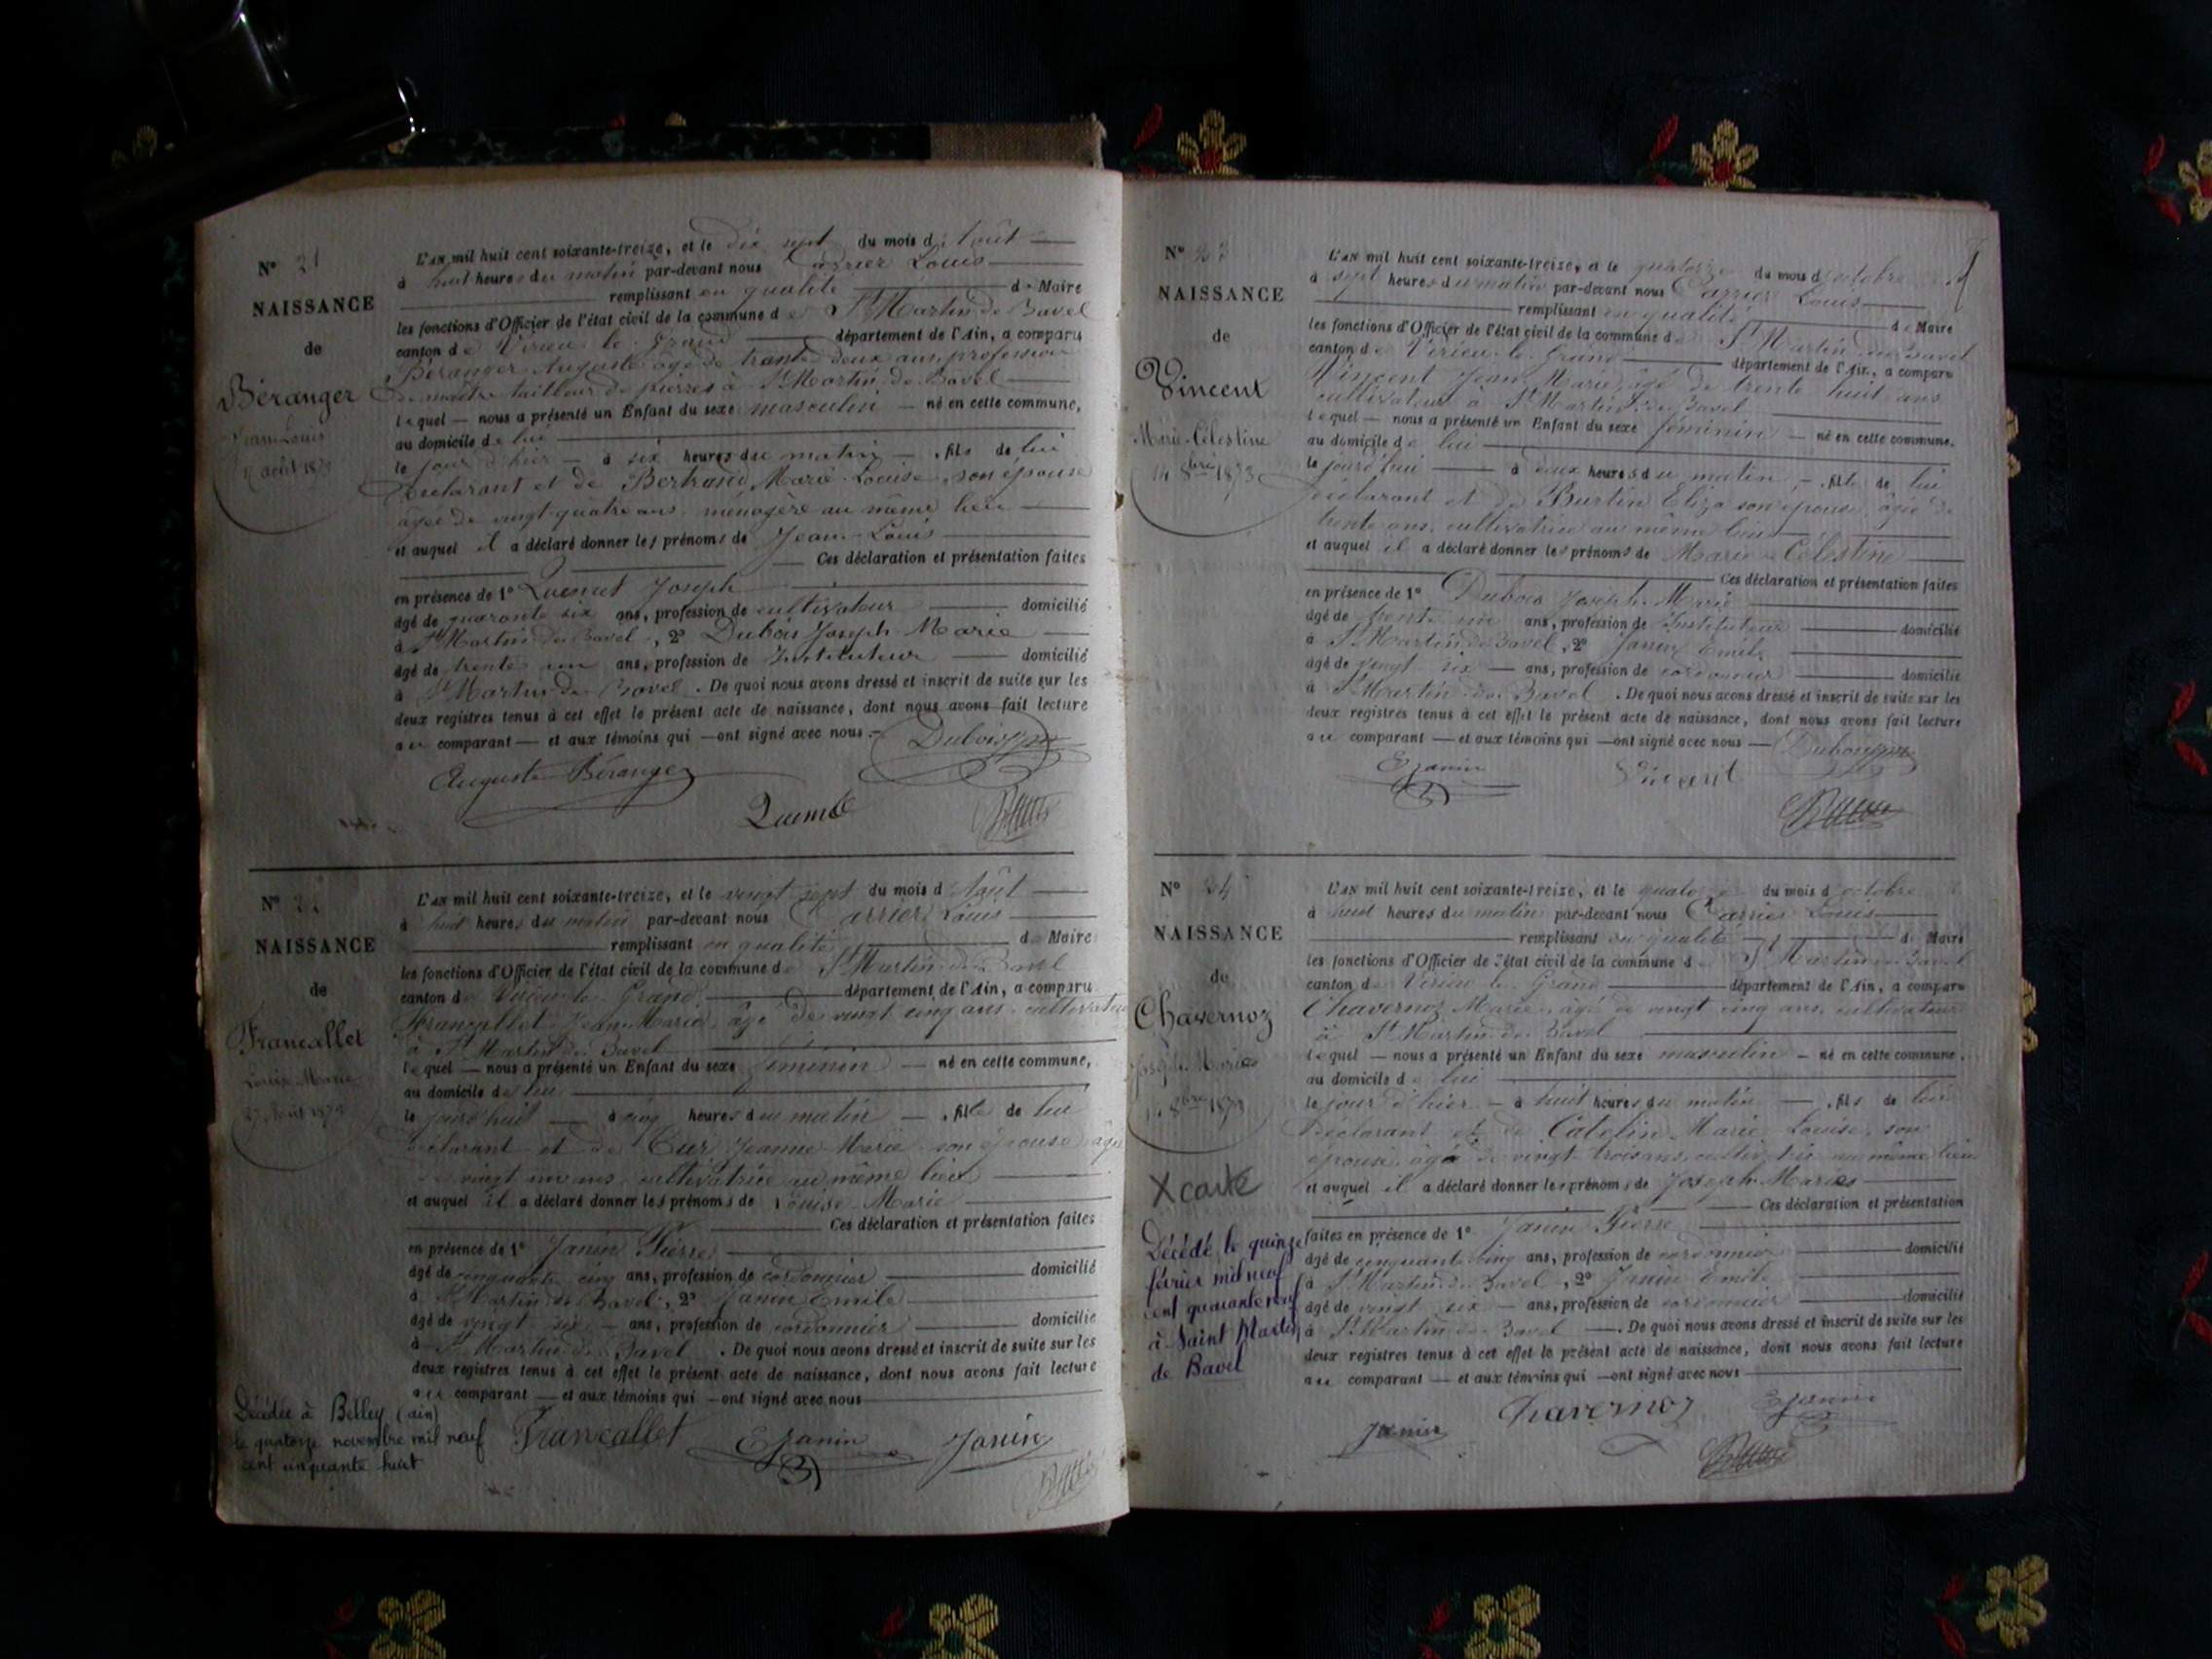 N° 21
NAISSANCE
de
Béranger
Jean-Louis
août 1873
L'AN mil huit cent soixante-treize, et le dix sept du mois d'Août
à huit heures du matin par-devant nous Carrier Louis
remplissant en qualité de Maire
les fonctions d'Officier de l'état civil de la commune de St Martin de Bavel
canton de Virieu le Grand département de l'Ain, a comparu
Béranger Auguste âgé de trente deux ans, profession
de maître tailleur de pierres à St Martin de Bavel
lequel — nous a présenté un Enfant du sexe masculin — né en cette commune,
au domicile de lui
le jour d'hier — à six heures du matin —, fils de lui
déclarant et de Bertrand Marie Louise, son épouse
âgée de vingt-quatre ans, ménagère au même lieu
et auquel il a déclaré donner les prénoms de Jean-Louis
Ces déclaration et présentation faites
en présence de 1° Quemet Joseph
âgé de quarante six ans, profession de cultivateur domicilié
à St Martin de Bavel, 2° Dubois Joseph Marie
âgé de trente un ans, profession de Instituteur domicilié
à St Martin de Bavel. De quoi nous avons dressé et inscrit de suite sur les
deux registres tenus à cet effet le présent acte de naissance, dont nous avons fait lecture
au comparant — et aux témoins qui — ont signé avec nous.
Dubois
Auguste Béranger
N° 22
NAISSANCE
de
Francallet
Louise Marie
27 Août 1873
L'AN mil huit cent soixante-treize, et le vingt sept du mois d'Août
à huit heures du matin par-devant nous Carrier Louis
remplissant en qualité de Maire
les fonctions d'Officier de l'état civil de la commune de St Martin de Bavel
canton de Virieu le Grand département de l'Ain, a comparu
Francallet Jean-Marie, âgé de vingt cinq ans, cultivateur
à St Martin de Bavel
lequel — nous a présenté un Enfant du sexe féminin — né en cette commune,
au domicile de lui
le jourd'hui — à cinq heures du matin —, fille de lui
déclarant et de Cur Jeanne Marie son épouse âgée
de vingt un ans, cultivatrice au même lieu
et auquel il a déclaré donner les prénoms de Louise Marie
Ces déclaration et présentation faites
en présence de 1° Janin Pierre
âgé de cinquante cinq ans, profession de cordonnier domicilié
à St Martin de Bavel, 2° Janin Emile
âgé de vingt six — ans, profession de cordonnier domicilié
à St Martin de Bavel. De quoi nous avons dressé et inscrit de suite sur les
deux registres tenus à cet effet le présent acte de naissance, dont nous avons fait lecture
au comparant — et aux témoins qui — ont signé avec nous
Décédée à Belley (ain)
le quatorze novembre mil neuf
cent cinquante huit
Francallet EJanin Janin
N° 23
NAISSANCE
de
Vincent
Marie-Célestine
14 8bre 1873
L'AN mil huit cent soixante-treize, et le quatorze du mois d'octobre
à sept heures du matin par-devant nous Carrier Louis
remplissant en qualité de Maire
les fonctions d'Officier de l'état civil de la commune de St Martin de Bavel
canton de Virieu le Grand département de l'Ain, a comparu
Vincent Jean Marie, âgé de trente huit ans
cultivateur à St Martin de Bavel
lequel — nous a présenté un Enfant du sexe féminin — né en cette commune,
au domicile de lui
le jourd'hui — à deux heures du matin —, fille de lui
déclarant et de Burtin Eliza son épouse, âgée de
trente ans, cultivatrice au même lieu
et auquel il a déclaré donner les prénoms de Marie-Célestine
Ces déclaration et présentation faites
en présence de 1° Dubois Joseph Marie
âgé de trente un ans, profession de Instituteur domicilié
à St Martin de Bavel, 2° Janin Emile
âgé de vingt six — ans, profession de cordonnier domicilié
à St Martin de Bavel. De quoi nous avons dressé et inscrit de suite sur les
deux registres tenus à cet effet le présent acte de naissance, dont nous avons fait lecture
au comparant — et aux témoins qui — ont signé avec nous — Dubois
EJanin Vincent
N° 24
NAISSANCE
de
Chavernoz
Joseph-Marie
8bre 1873
X carte
Décédé le quinze
février mil neuf
cent quarante neuf
à Saint Martin
de Bavel
L'AN mil huit cent soixante-treize, et le quatorze du mois d'octobre
à huit heures du matin par-devant nous Carrier Louis
remplissant en qualité de Maire
les fonctions d'Officier de l'état civil de la commune de St Martin de Bavel
canton de Virieu le Grand département de l'Ain, a comparu
Chavernoz Marie, âgé de vingt cinq ans, cultivateur
à St Martin de Bavel
lequel — nous a présenté un Enfant du sexe masculin — né en cette commune,
au domicile de lui
le jour d'hier — à huit heures du matin —, fils de lui
déclarant et de Catelin Marie Louise, son
épouse, âgée de vingt trois ans, cultivatrice au même lieu
et auquel il a déclaré donner les prénoms de Joseph Marie
Ces déclaration et présentation
faites en présence de 1° Janin Pierre
âgé de cinquante cinq ans, profession de cordonnier domicilié
à St Martin de Bavel, 2° Janin Emile
âgé de vingt six — ans, profession de cordonnier domicilié
à St Martin de Bavel —. De quoi nous avons dressé et inscrit de suite sur les
deux registres tenus à cet effet le présent acte de naissance, dont nous avons fait lecture
au comparant — et aux témoins qui — ont signé avec nous
Janin Chavernoz EJanin